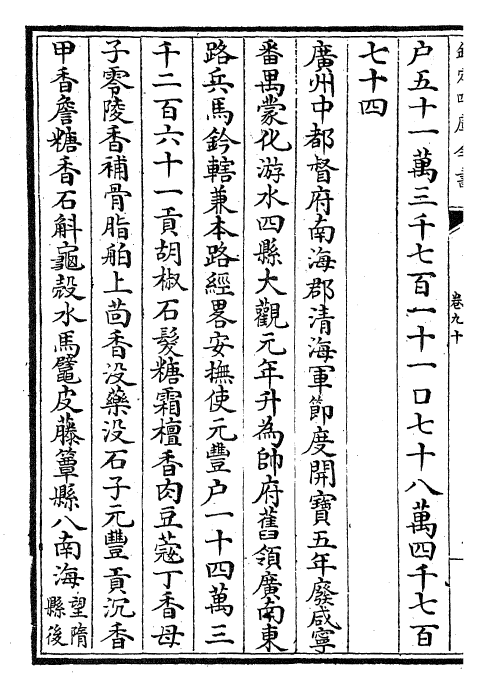 欽定四庫全書
卷九十
户五十一萬三千七百一十一口七十八萬四千七百
七十四
廣州中都督府南海郡清海軍節度開寶五年廢咸寧
番禺蒙化游水四縣大觀元年升為帥府舊領廣南東
路兵馬鈐轄兼本路經畧安撫使元豐户一十四萬三
千二百六十一貢胡椒石髮糖霜檀香肉豆蔻丁香母
子零陵香補骨脂舶上茴香没藥没石子元豐貢沉香
甲香詹糖香石斛龜殼水馬鼊皮藤簟縣八南海望隋
縣後